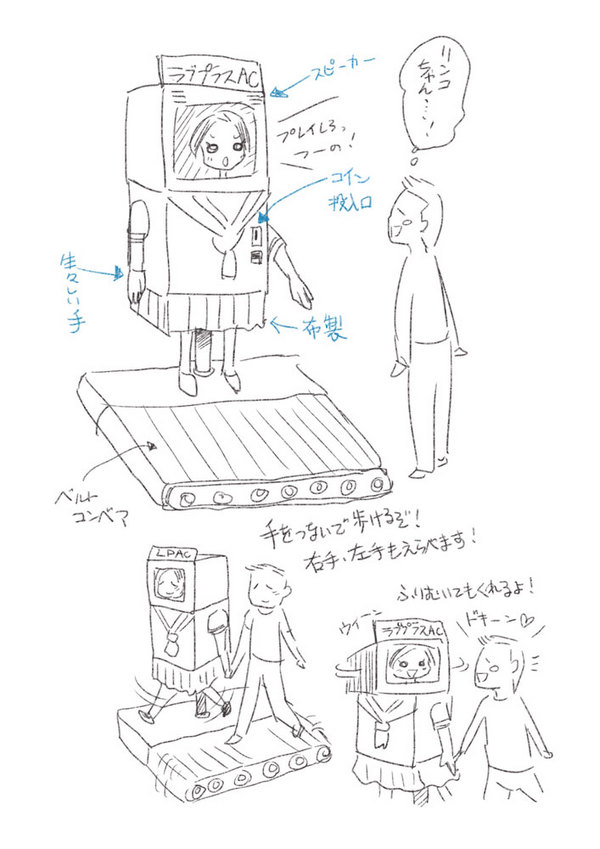 ラブプラスAC
スピーカー
プレイしろっ
つーの!
リンコ
ちゃん…!
コイン
投入口
生々しい手
布製
ベルト
コンベア
手をつないで歩けるぞ!
右手、左手もえらべます!
LPAC
ふりむいてもくれるよ!
ウィーン
ドキーン♡
ラブプラスAC